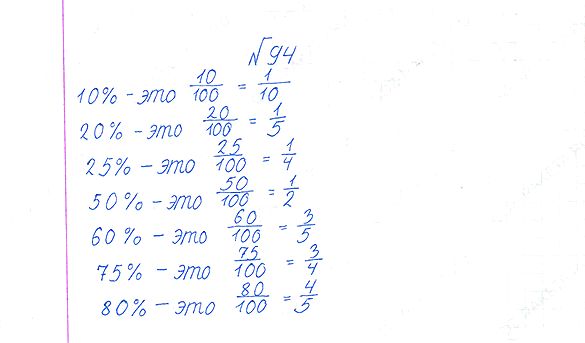 №94
10% - это 10/100 = 1/10
20% - это 20/100 = 1/5
25% - это 25/100 = 1/4
50% - это 50/100 = 1/2
60% - это 60/100 = 3/5
75% - это 75/100 = 3/4
80% - это 80/100 = 4/5